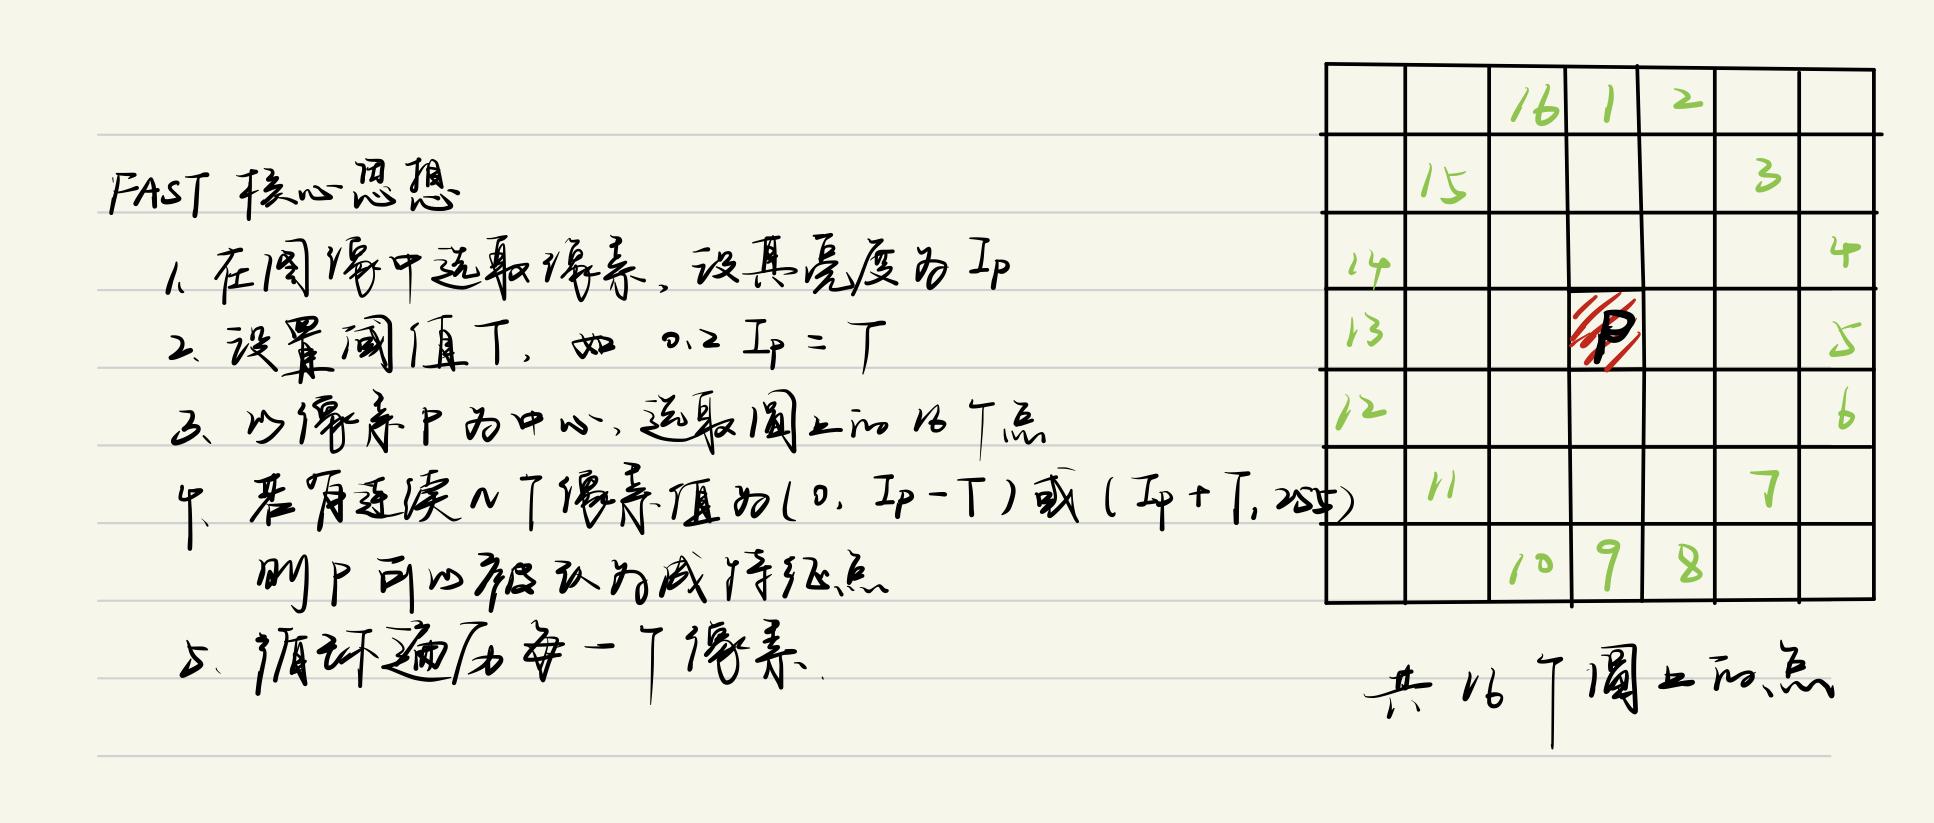 FAST 核心思想
1、在图像中选取像素,设其亮度为 Ip
2、设置阈值T, 如 0.2 Ip = T
3、以像素P为中心,选取圆上的16个点
4、若有连续N个像素值为(0, Ip-T)或(Ip+T,255)
则P可以被认为成特征点
5、循环遍历每一个像素、
16 1 2
15 3
14 4
13 P 5
12 6
11 7
10 9 8
共16个圆上的点